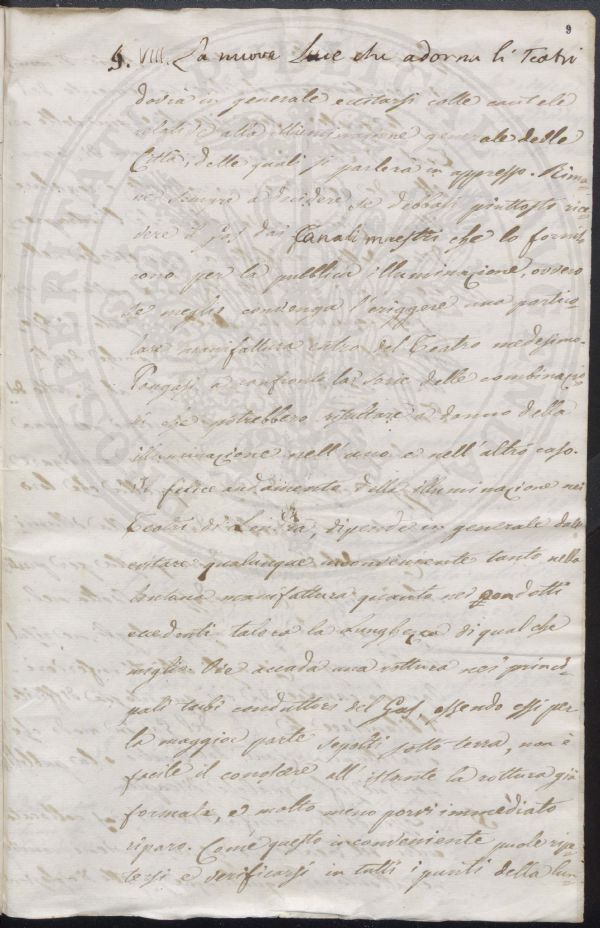 9
§. VIII. La nuova Luce che adorna li Teatri
dovrà in generale eccitarsi colle cautele
relative alla illuminazione generale delle
Città, delle quali si parlerà in appresso. Rima-
ne sempre a decidere, se debbasi piuttosto rice-
vere il gas dai Canali maestri che lo forni-
rono per la pubblica illuminazione, ovvero
se meglio convenga l'eriggere una partico-
lare manifattura entro del Teatro medesimo.
Pongasi a confronto la serie delle combinazio-
ni che potrebbero risultare a danno della
illuminazione nell'uno e nell'altro caso.
Il felice andamento della illuminazione nei
Teatri di Londra, dipende in generale dall'
evitare qualunque inconveniente tanto nella
lontana manifattura quanto nei condotti
eccedenti talora la lunghezza di qualche
miglio. Ove accada una rottura nei princi-
pali tubi conduttori del Gas, essendo essi per
la maggior parte sepolti sotto terra, non è
facile il conoscere all'istante la rottura già
formata, e molto meno porvi immediato
riparo. Come questo inconveniente puole ripe-
tersi e verificarsi in tutti i punti della lun-